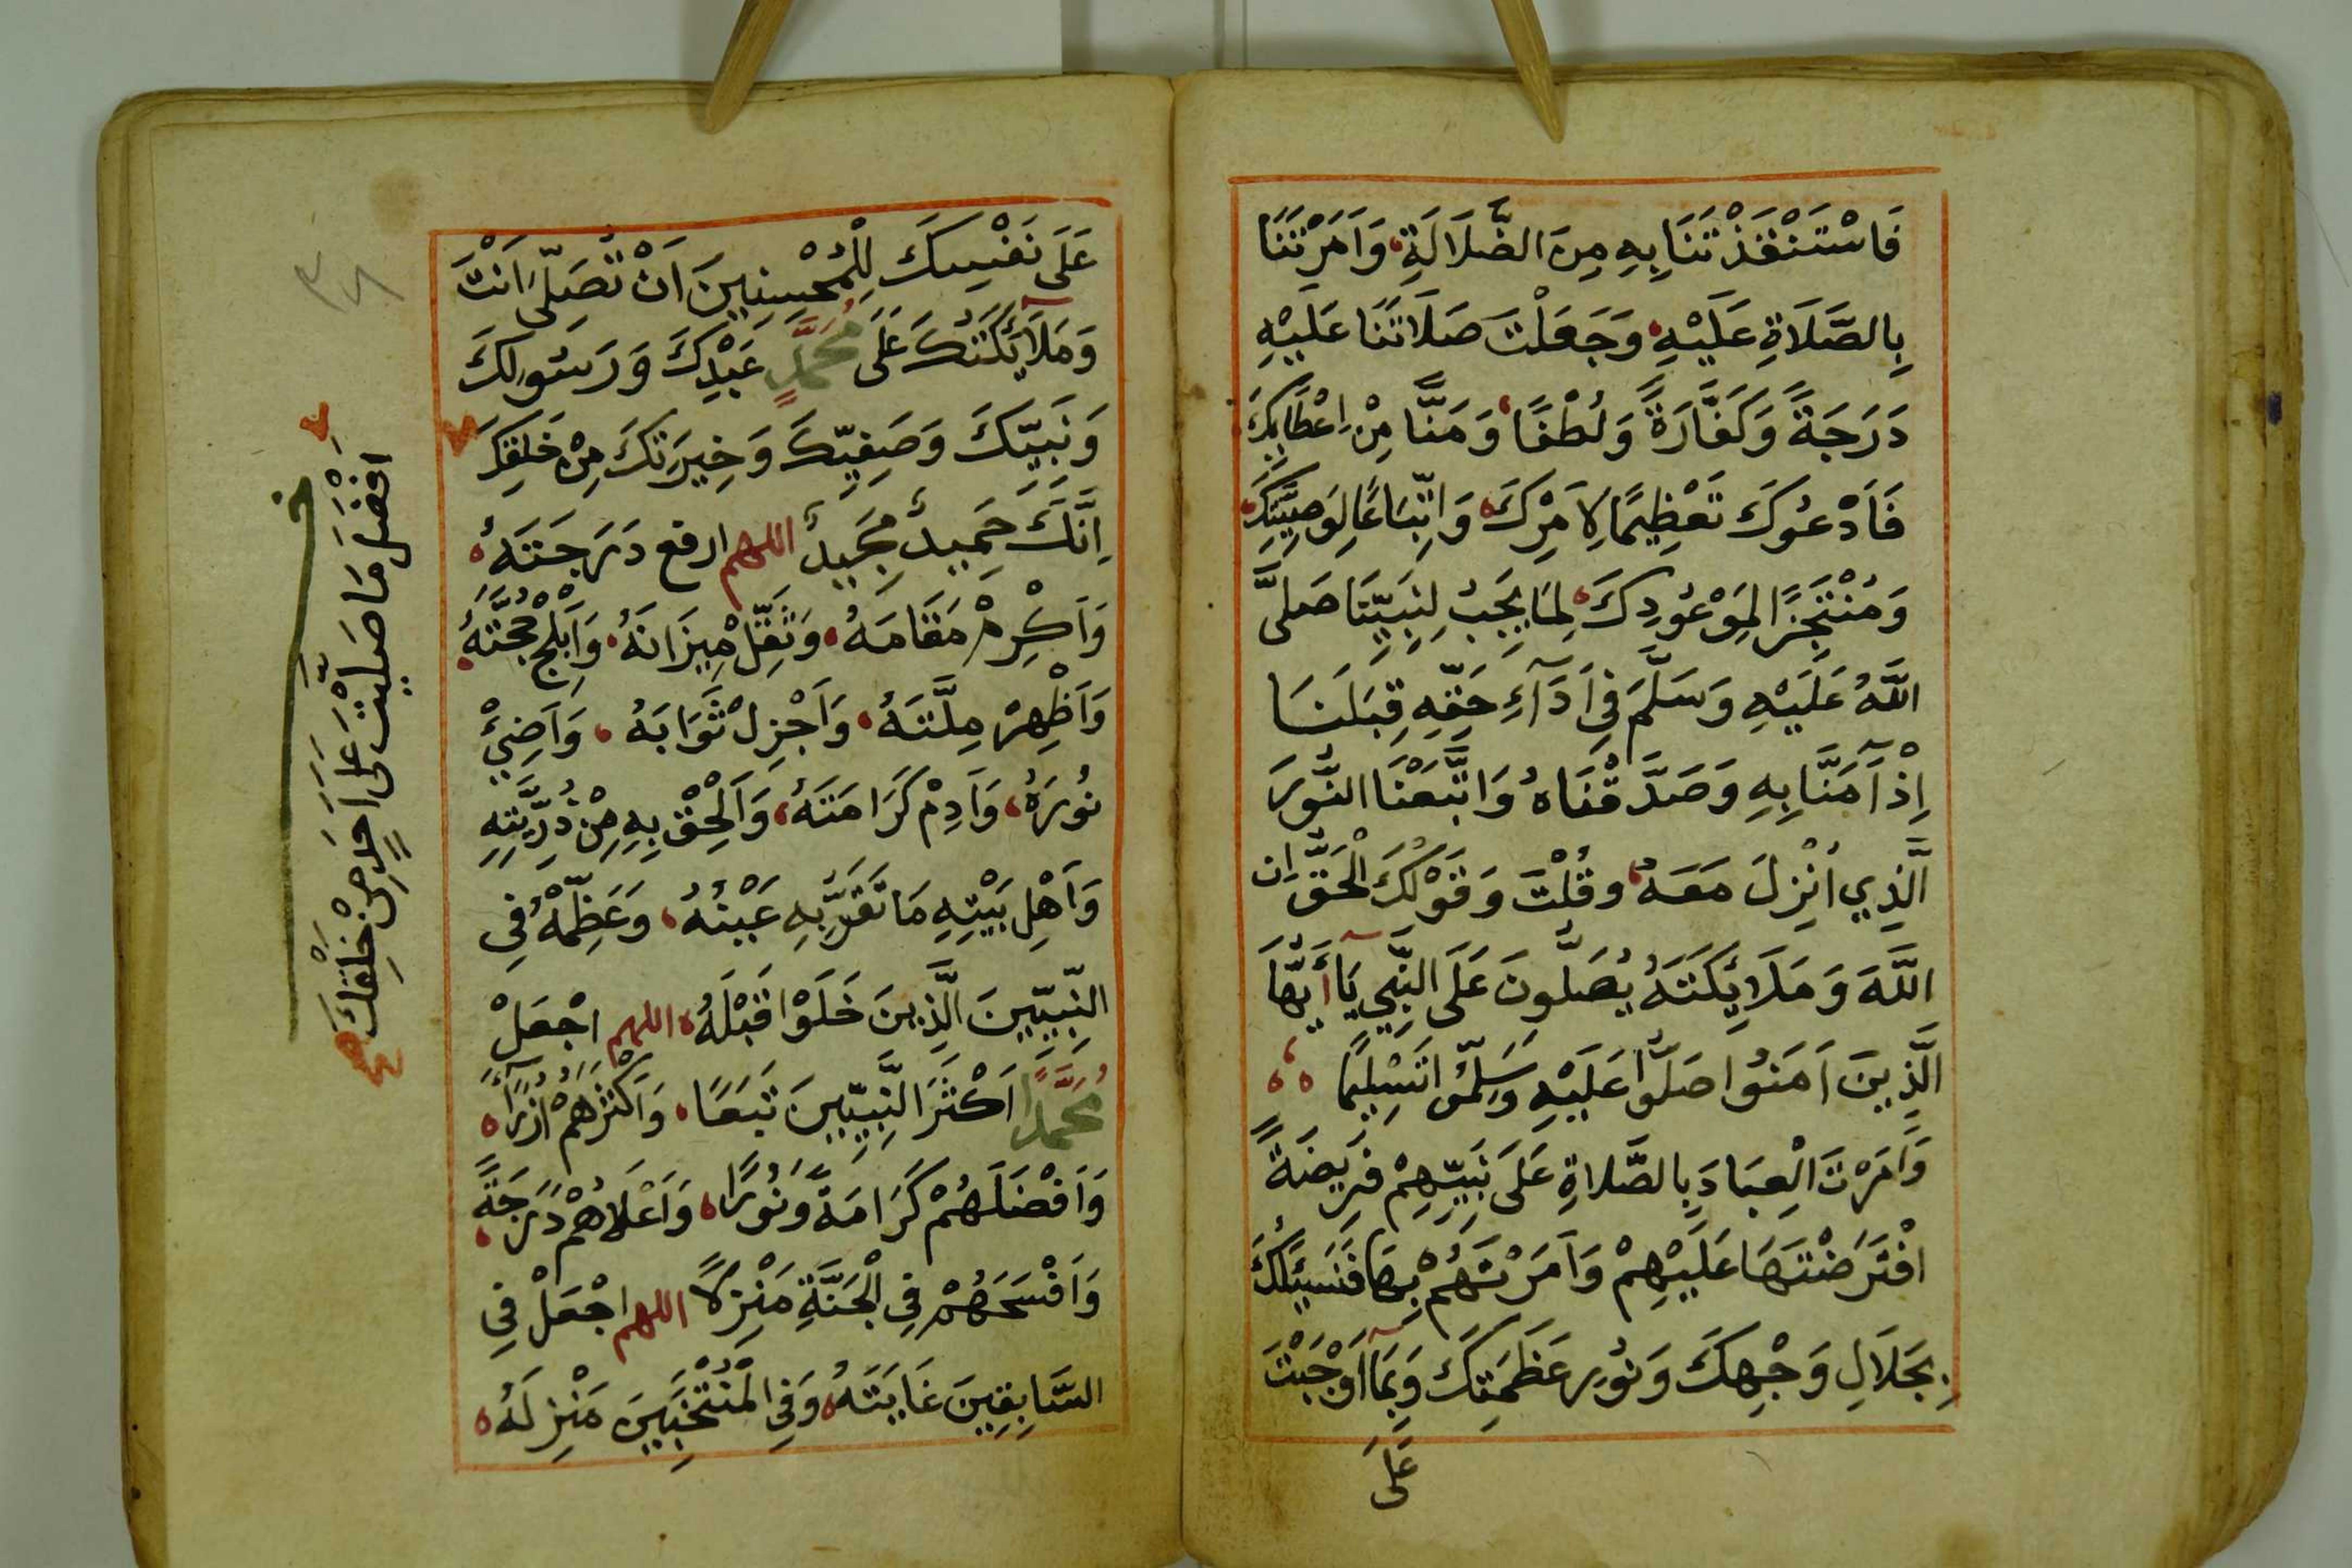 فَاسْتَنْقَذْتَنَا بِهِ مِنَ الضَّلَالَةِ، وَاَمَرْتَنَا
بِالصَّلَاةِ عَلَيْهِ، وَجَعَلْتَ صَلَاتَنَا عَلَيْهِ
دَرَجَةً وَكَفَّارَةً وَلُطْفًا، وَمَنًّا مِنْ اِعْطَائِكَ
فَاَدْعُوكَ تَعْظِيمًا لِاَمْرِكَ، وَاتِّبَاعًا لِوَصِيَّتِكَ،
وَمُنْتَجِزًا لِمَوْعُودِكَ، لِمَا يَجِبُ لِنَبِيِّنَا صَلَّى
اللَّهُ عَلَيْهِ وَسَلَّمَ فِى اَدَآءِ حَقِّهِ قِبَلَنَا
اِذْ آمَنَّا بِهِ وَصَدَّقْنَاهُ وَاتَّبَعْنَا النُّورَ
الَّذِي اُنْزِلَ مَعَهُ، وقُلْتَ وَقَوْلُكَ الْحَقُّ اِنَّ
اللَّهَ وَمَلَائِكَتَهُ يُصَلُّونَ عَلَى النَّبِّي يَآ أَيُّهَا
الَّذِينَ اَمَنُوا صَلُّوا عَلَيْهِ وَسَلِّمُوا تَسْلِيمًا ،،،
وَاَمَرْتَ الْعِبَادَ بِالصَّلاةِ عَلَى نَبِيِّهِمْ فَرِيضَةً
افْتَرَضْتَهَا عَلَيْهِمْ وَاَمَرْتَهُمْ بِهَا فَنَسْئَلُكَ
بِجَلَالِ وَجْهِكَ وَنُورِ عَظَمَتِكَ وَبِمَآ اَوْجَبْتَ
عَلَى
عَلَى نَفْسِكَ لِلْمُحْسِنِينَ اَنْ تُصَلِّىَ اَنْتَ
وَمَلَآئِكَتُكَ عَلَى مُحَمَّدٍ عَبْدِكَ وَرَسُولِكَ
وَنَبِيِّكَ وَصَفِيِّكَ وَخِيرَتِكَ مِنْ خَلْقِكَ
اِنَّكَ حَمِيدٌ مَجِيدٌ اللهم ارفع دَرَجَتَهُ،
وَاَكْرِمْ مَقَامَهُ، وَثَقِّلْ مِيزَانَهُ، وَاَبْلِجْ حُجَّتَهُ،
وَاَظْهِرْ مِلَّتَهُ، وَاَجْزِلْ ثَوَابَهُ، وَاَضِئْ
نُورَهُ، وَاَدِمْ كَرَامَتَهُ، وَاَلْحِقْ بِهِ مِنْ ذُرِّيَّتِهِ
وَاَهْلِ بَيْتِهِ مَا تَقَرُّ بِهِ عَيْنُهُ، وَعَظِّمْهُ فِى
النَّبِيِّينَ الَّذِينَ خَلَوْا قَبْلَهُ، اللهم اجْعَلْ
مُحَمَّدًا اَكْثَرَ النَّبِيِّينَ تَبَعًا، وَاَكْثَرَهُمْ اُزَرَآءً،
وَاَفْضَلَهُمْ كَرَامَةً وَنُورًا، وَاَعْلَاهُمْ دَرَجَةً،
وَاَفْسَحَهُمْ فِى الْجَنَّةِ مَنْزِلًا اللهم اجْعَلْ فِى
السَّابِقِينَ غَايَتَهُ، وَفِى الْمُنْتَخَبِينَ مَنْزِلَهُ،
اَفْضَلَ مَا صَلَّيْتَ عَلَى اَحَدٍ مِنْ خَلْقِكَ